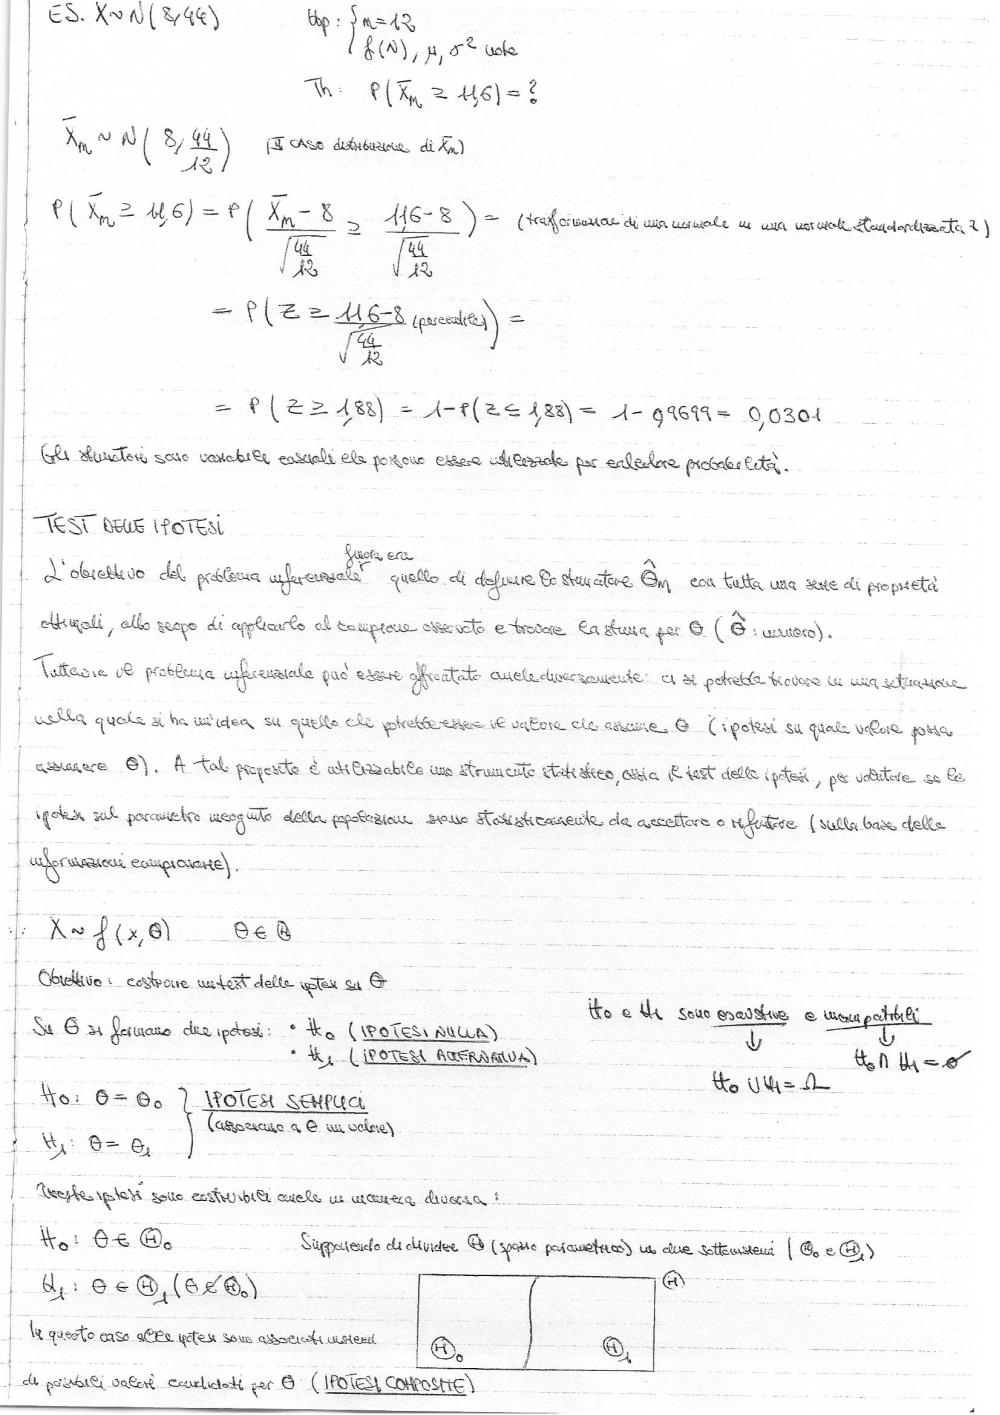 ES. X~N(8,44) Hp: { n=12
f(N), μ, σ² note
Th: P(X̄n ≥ 11,6) = ?
X̄n ~ N(8, 44/12) (II CASO distribuzione di X̄n)
P(X̄n ≥ 11,6) = P( (X̄n-8)/√(44/12) ≥ (11,6-8)/√(44/12) ) = (trasformazione di una normale in una normale standardizzata Z)
= P( Z ≥ (11,6-8)/√(44/12) (percentile) ) =
= P(Z ≥ 1,88) = 1-P(Z ≤ 1,88) = 1-0,9699 = 0,0301
Gli stimatori sono variabili casuali che possono essere utilizzate per calcolare probabilità.
TEST DELLE IPOTESI
L'obiettivo del problema inferenziale finora era quello di definire lo stimatore Θ̂n con tutta una serie di proprietà
ottimali, allo scopo di applicarlo al campione osservato e trovare la stima per θ (θ̂: numero).
Tuttavia il problema inferenziale può essere affrontato anche diversamente: ci si potrebbe trovare in una situazione
nella quale si ha un'idea su quello che potrebbe essere il valore che assume θ (ipotesi su quale valore possa
assumere θ). A tal proposito è utilizzabile uno strumento statistico, ossia il test delle ipotesi, per valutare se le
ipotesi sul parametro incognito della popolazione siano statisticamente da accettare o rifiutare (sulla base delle
informazioni campionarie).
X~f(x,θ) θ∈Θ
Obiettivo: costruire un test delle ipotesi su θ
Su θ si formano due ipotesi: • H₀ (IPOTESI NULLA)
• H₁ (IPOTESI ALTERNATIVA)
H₀ e H₁ sono esaustive e incompatibili
↓ ↓
H₀ ∪ H₁ = Ω H₀ ∩ H₁ = ∅
H₀: θ = θ₀ } IPOTESI SEMPLICI
H₁: θ = θ₁ (associano a θ un valore)
Queste ipotesi sono costruibili anche in maniera diversa:
H₀: θ∈Θ₀ Supponendo di dividere Θ (spazio parametrico) in due sottoinsiemi (Θ₀ e Θ₁)
H₁: θ∈Θ₁ (θ∉Θ₀)
Θ
Θ₀ Θ₁
In questo caso alle ipotesi sono associati insiemi
di possibili valori candidati per θ (IPOTESI COMPOSITE)